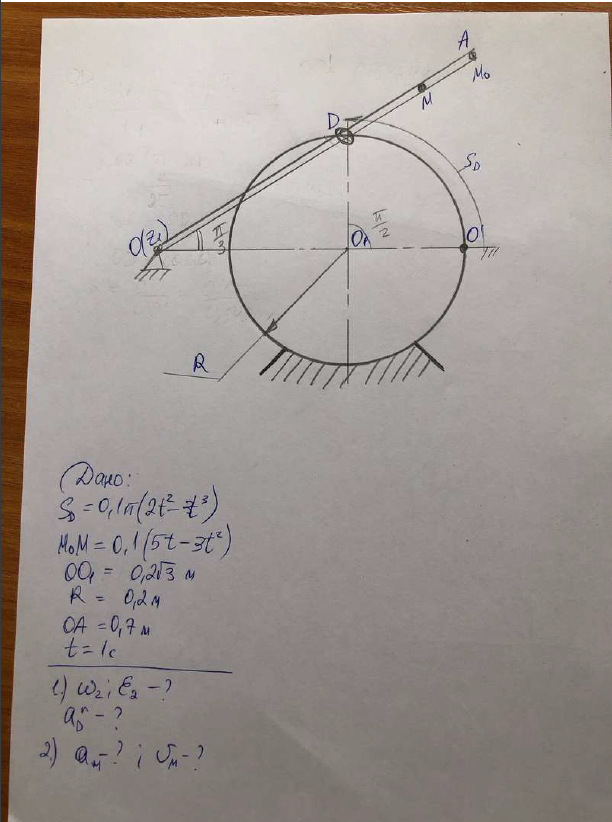 A
M₀
M
D
S_D
π/2
O(Z₁)
π/3
O₁
O'
R
Дано:
S_D = 0,1π(2t² - t³)
M₀M = 0,1(5t - 3t²)
OO₁ = 0,2√3 м
R = 0,2 м
OA = 0,7 м
t = 1с
1) ω₂; ε₂ - ?
a_Dⁿ - ?
2) a_M - ? ; υ_M - ?